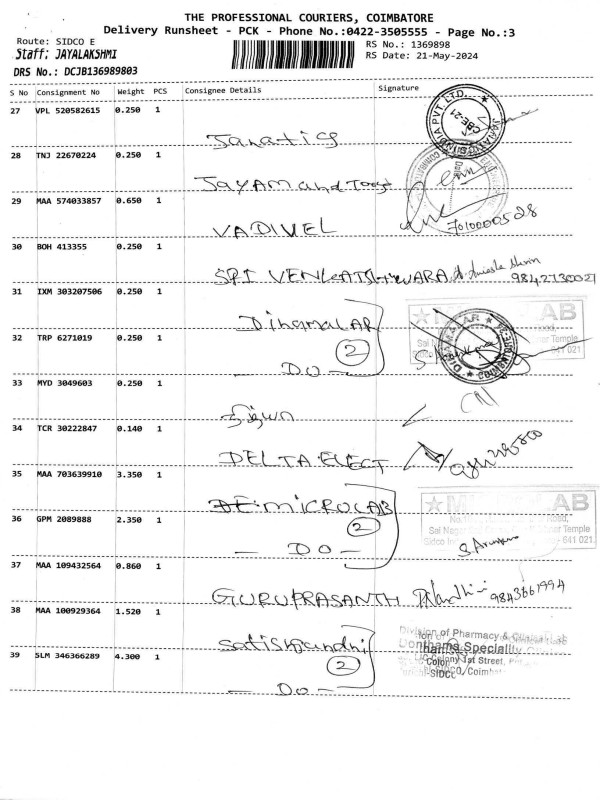 THE PROFESSIONAL COURIERS, COIMBATORE
Delivery Runsheet - PCK - Phone No.:0422-3505555 - Page No.:3
Route: SIDCO E
RS No.: 1369898
Staff: JAYALAKSHMI
RS Date: 21-May-2024
DRS No.: DCJB136989803
S No Consignment No Weight PCS Consignee Details Signature
27 VPL 520582615 0.250 1
Janatics
28 TNJ 22670224 0.250 1
JAYAM and
29 MAA 574033857 0.650 1
VADIVEL 7010000528
30 BOH 413355 0.250 1
SRI VENKATSHWARA 9842730027
31 IXM 303207506 0.250 1
DinamaLAR
32 TRP 6271019 0.250 1
2
- DO -
33 MYD 3049603 0.250 1
நித்யா
34 TCR 30222847 0.140 1
DELTA ELECT
35 MAA 703639910 3.350 1
MICROLAB
36 GPM 2089888 2.350 1
2
- DO -
S.
37 MAA 109432564 0.860 1
GURUPRASANTH 9843661994
38 MAA 100929364 1.520 1
Satishgandhi
Division of Pharmacy &
Speciality
39 SLM 346366289 4.300 1
2
Colony 1st Street,
- DO -